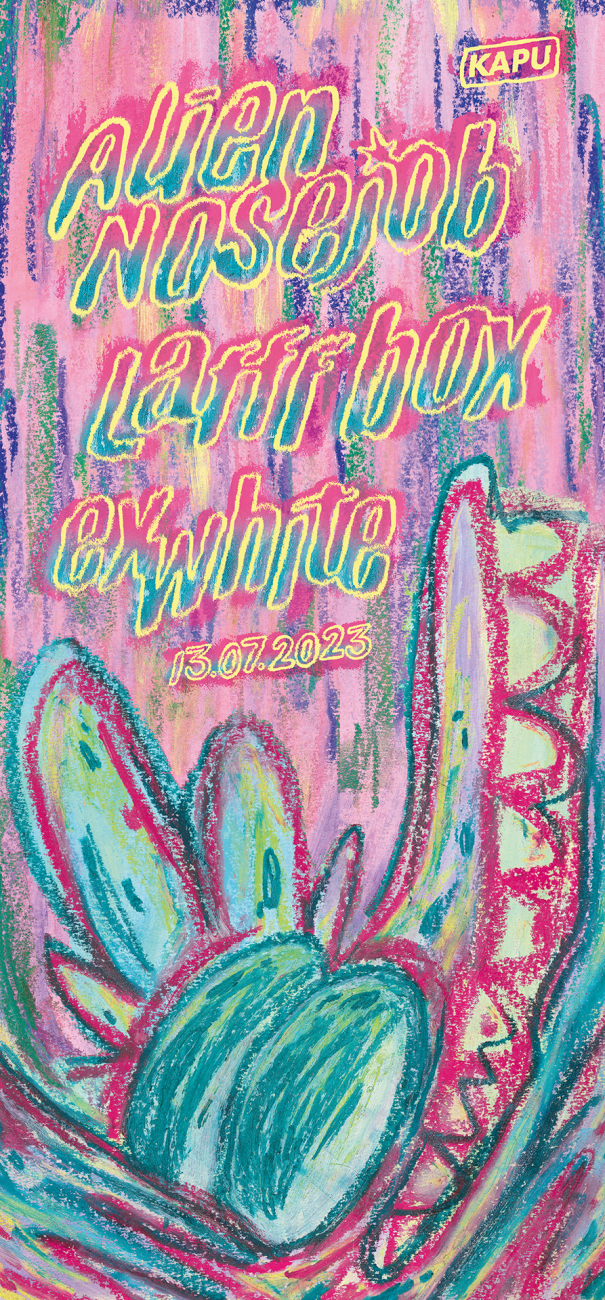 KAPU
Alien
Nosejob
Larfff box
exwhite
13.07.2023